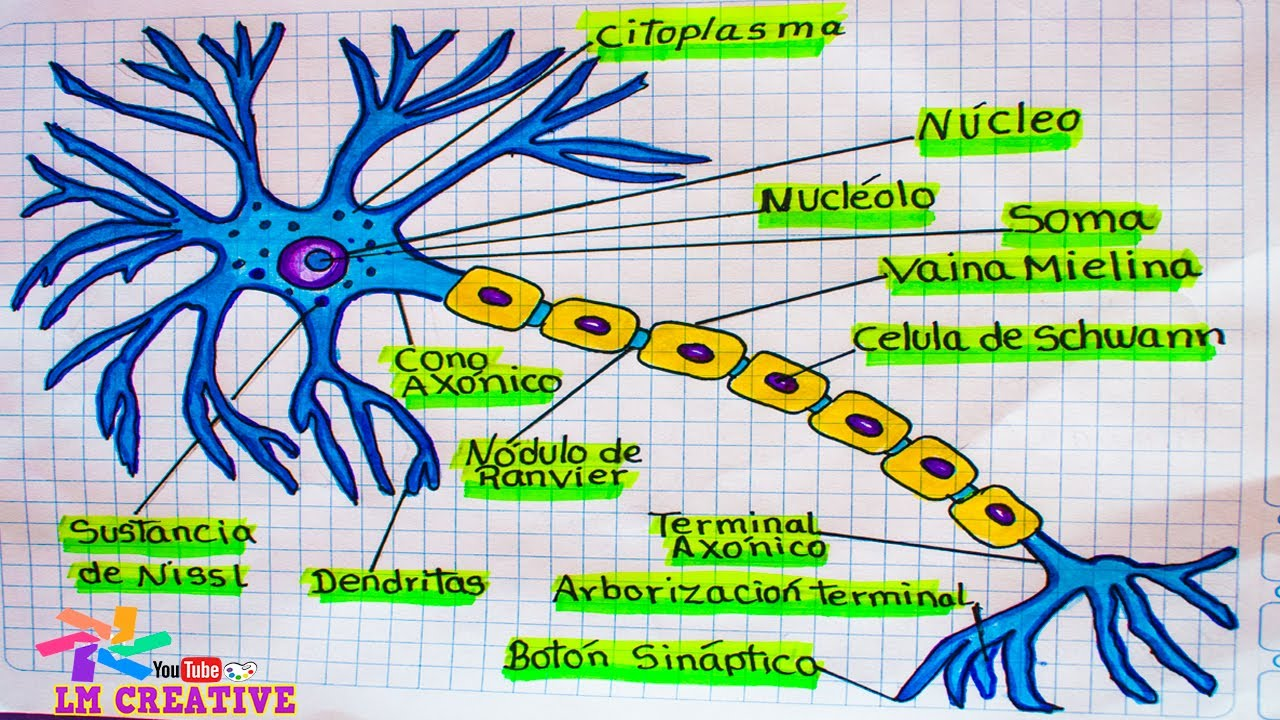 Citoplasma
Núcleo
Nucléolo
Soma
Vaina Mielina
Celula de Schwann
Cono
Axónico
Nódulo de
Ranvier
Sustancia
de Nissl
Dendritas
Terminal
Axónico
Arborización terminal
Botón Sináptico
YouTube
LM CREATIVE